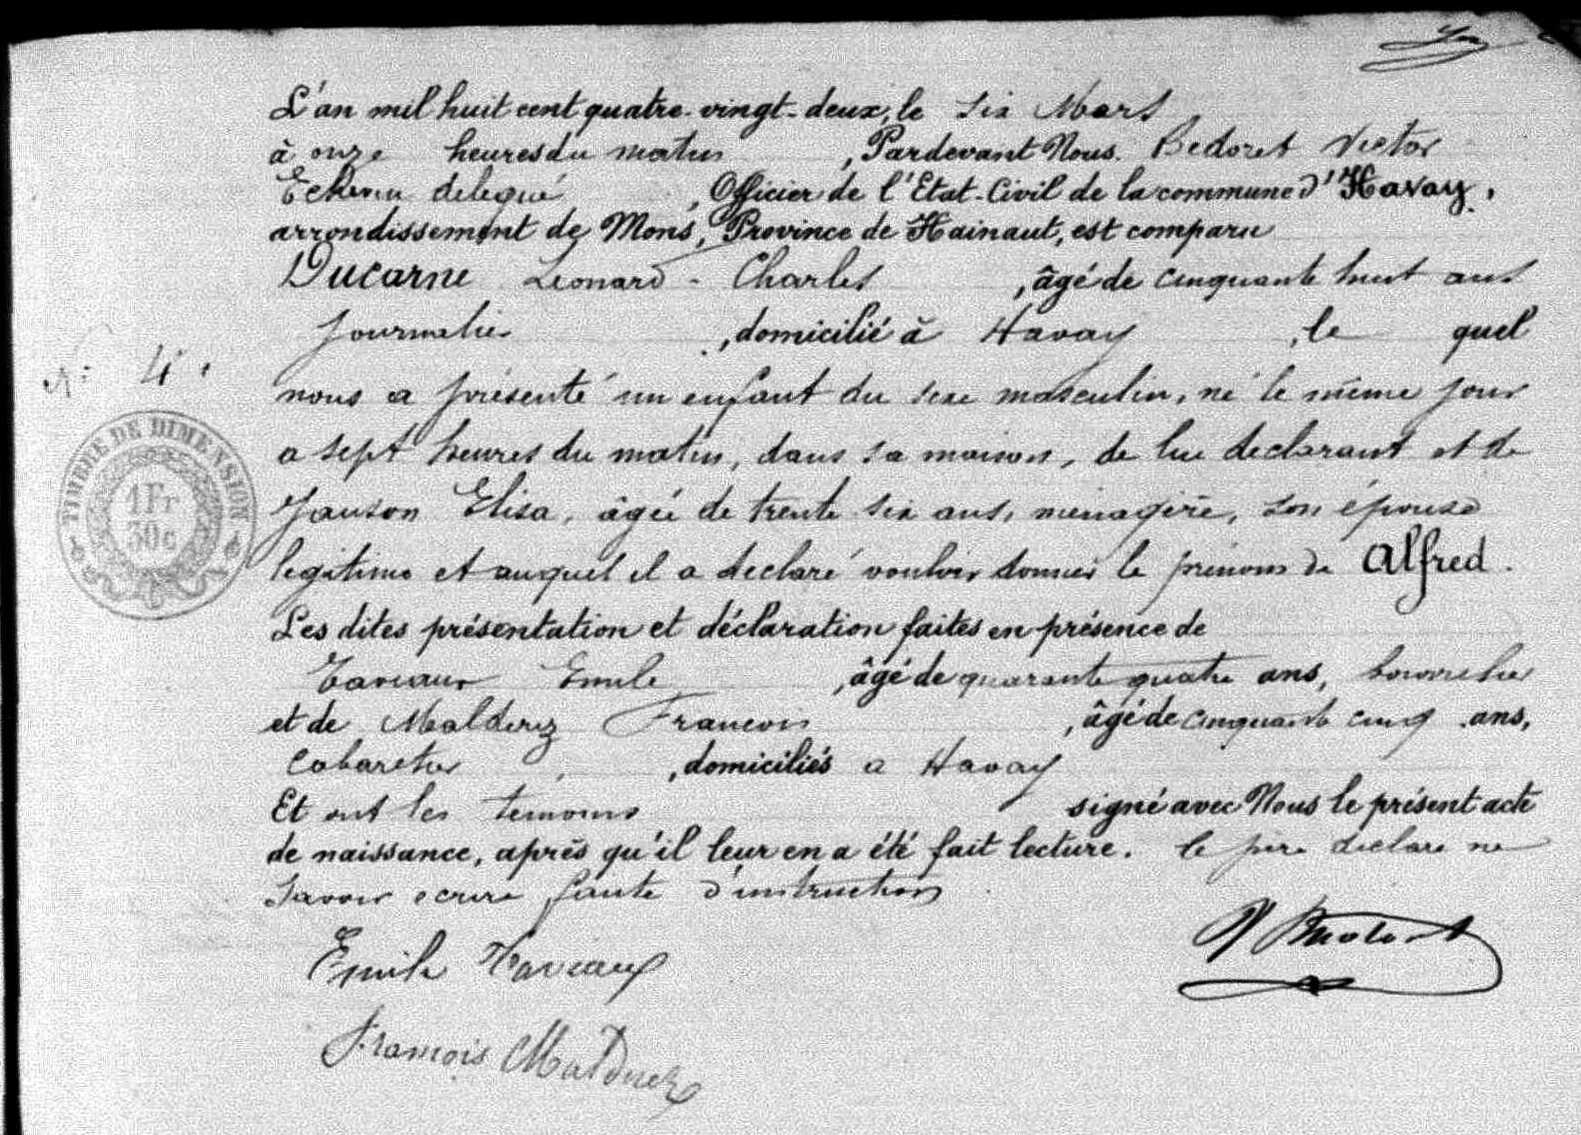 L'an mil huit cent quatre-vingt-deux, le six Mars
à onze heures du matin, Pardevant Nous. Bedoret Victor
Echevin delegué, Officier de l'Etat-Civil de la commune d'Havay,
arrondissement de Mons, Province de Hainaut, est comparu
Ducarne Leonard-Charles, âgé de cinquante huit ans
journalier, domicilié à Havay, le quel
N° 4.
nous a présenté un enfant du sexe masculin, né le même jour
a sept heures du matin, dans sa maison, de lui declarant et de
TIMBRE DE DIMENSION
1 Fr
30c
Jauson Elisa, âgée de trente six ans, menagère, son épouse
legitime et auquel il a declaré vouloir donner le prénom de Alfred.
Les dites présentation et déclaration faites en présence de
Taviaux Emile, âgé de quarante quatre ans, bourrelier
et de Malderez Francois, âgé de cinquante cinq ans,
Cabaretier, domiciliés a Havay
Et ont les temoins signé avec Nous le présent acte
de naissance, après qu'il leur en a été fait lecture. le père declare ne
savoir ecrire faute d'instruction
Emile Taviaux
François Malderez